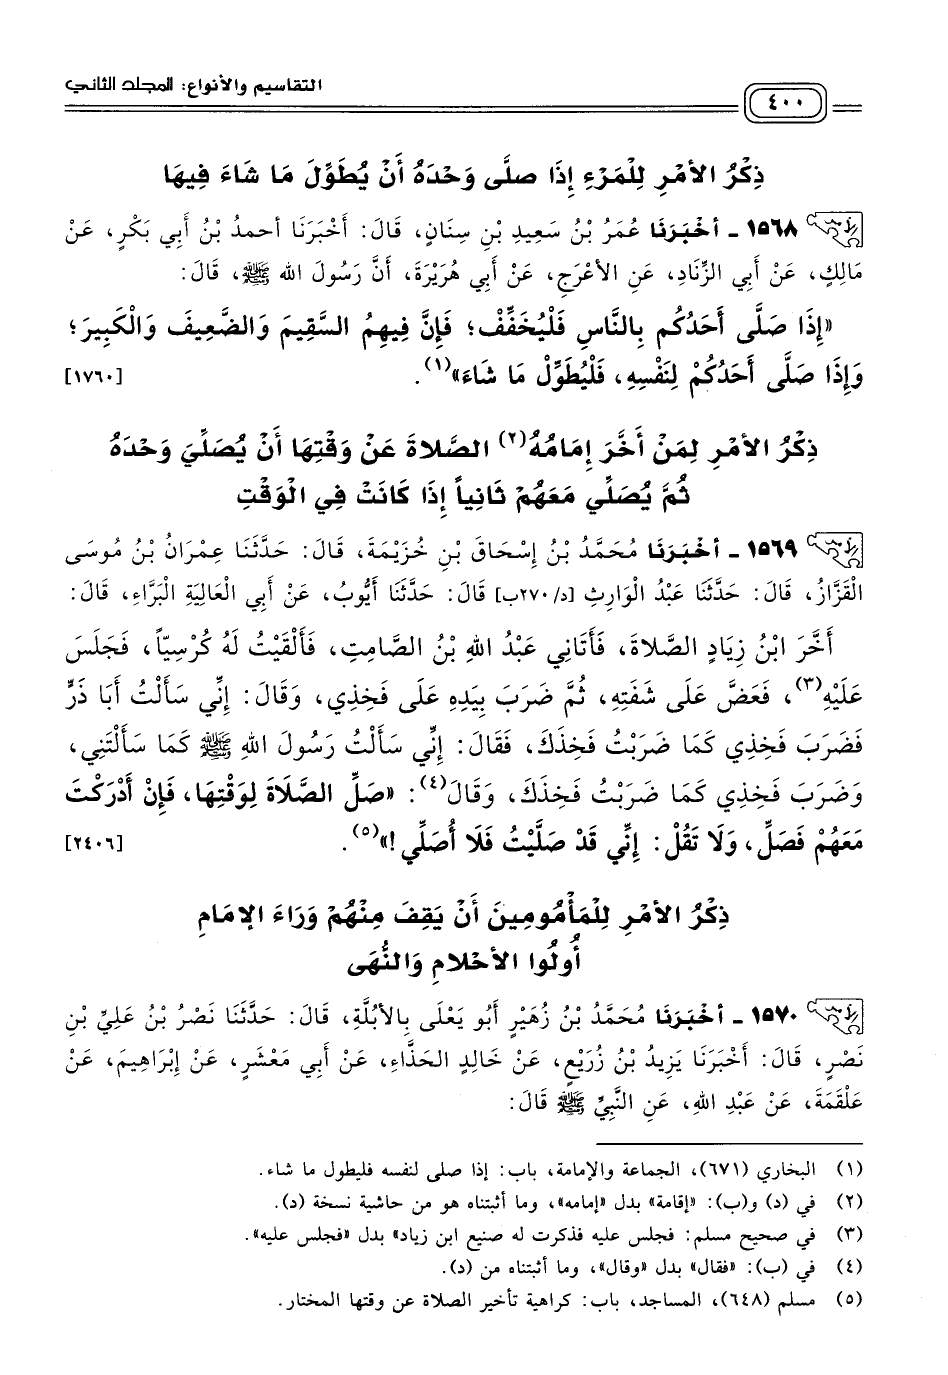 التقاسيم والأنواع: المجلد الثاني
٤٠٠
ذِكْرُ الأمْرِ لِلْمَرْءِ إِذَا صلَّى وَحْدَهُ أَنْ يُطَوِّلَ مَا شَاءَ فِيهَا
١٥٦٨ - أخْبَرَنَا عُمَرُ بْنُ سَعِيدِ بْنِ سِنَانٍ، قَالَ: أَخْبَرَنَا أحمدُ بْنُ أَبِي بَكْرٍ، عَنْ
مَالِكٍ، عَنْ أَبِي الزِّنَادِ، عَنِ الأعْرَجِ، عَنْ أَبِي هُرَيْرَةَ، أَنَّ رَسُولَ الله ﷺ، قَالَ:
«إِذَا صَلَّى أَحَدُكُم بِالنَّاسِ فَلْيُخَفِّفْ؛ فَإِنَّ فِيهِمُ السَّقِيمَ وَالضَّعِيفَ وَالْكَبِيرَ؛
وَإِذَا صَلَّى أَحَدُكُمْ لِنَفْسِهِ، فَلْيُطَوِّلْ مَا شَاءَ»(١). [١٧٦٠]
ذِكْرُ الأمْرِ لِمَنْ أَخَّرَ إِمَامُهُ(٢) الصَّلاةَ عَنْ وَقْتِهَا أَنْ يُصَلِّيَ وَحْدَهُ
ثُمَّ يُصَلِّي مَعَهُمْ ثَانِياً إِذَا كَانَتْ فِي الْوَقْتِ
١٥٦٩ - أخْبَرَنَا مُحَمَّدُ بْنُ إِسْحَاقَ بْنِ خُزَيْمَةَ، قَالَ: حَدَّثَنَا عِمْرَانُ بْنُ مُوسَى
الْقَزَّازُ، قَالَ: حَدَّثَنَا عَبْدُ الْوَارِثِ [د/٢٧٠ب] قَالَ: حَدَّثَنَا أَيُّوبُ، عَنْ أَبِي الْعَالِيَةِ الْبَرَّاءِ، قَالَ:
أَخَّرَ ابْنُ زِيَادٍ الصَّلاةَ، فَأَتَانِي عَبْدُ اللهِ بْنُ الصَّامِتِ، فَأَلْقَيْتُ لَهُ كُرْسِيّاً، فَجَلَسَ
عَلَيْهِ(٣)، فَعَضَّ عَلَى شَفَتِهِ، ثُمَّ ضَرَبَ بِيَدِهِ عَلَى فَخِذِي، وَقَالَ: إِنِّي سَأَلْتُ أَبَا ذَرٍّ
فَضَرَبَ فَخِذِي كَمَا ضَرَبْتُ فَخِذَكَ، فَقَالَ: إِنِّي سَأَلْتُ رَسُولَ اللهِ ﷺ كَمَا سَأَلْتَنِي،
وَضَرَبَ فَخِذِي كَمَا ضَرَبْتُ فَخِذَكَ، وَقَالَ(٤): «صَلِّ الصَّلَاةَ لِوَقْتِهَا، فَإِنْ أَدْرَكْتَ
مَعَهُمْ فَصَلِّ، وَلَا تَقُلْ: إِنِّي قَدْ صَلَّيْتُ فَلَا أُصَلِّي!»(٥). [٢٤٠٦]
ذِكْرُ الأمْرِ لِلْمَأْمُومِينَ أَنْ يَقِفَ مِنْهُمْ وَرَاءَ الإمَامِ
أُولُوا الأحْلامِ وَالنُّهَى
١٥٧٠ - أخْبَرَنَا مُحَمَّدُ بْنُ زُهَيْرٍ أَبُو يَعْلَى بِالأُبُلَّةِ، قَالَ: حَدَّثَنَا نَصْرُ بْنُ عَلِيِّ بْنِ
نَصْرٍ، قَالَ: أَخْبَرَنَا يَزِيدُ بْنُ زُرَيْعٍ، عَنْ خَالِدٍ الحَذَّاءِ، عَنْ أَبِي مَعْشَرٍ، عَنْ إِبْرَاهِيمَ، عَنْ
عَلْقَمَةَ، عَنْ عَبْدِ اللهِ، عَنِ النَّبِيِّ ﷺ قَالَ:
(١) البخاري (٦٧١)، الجماعة والإمامة، باب: إذا صلى لنفسه فليطول ما شاء.
(٢) في (د) و(ب): «إقامة» بدل «إمامه»، وما أثبتناه هو من حاشية نسخة (د).
(٣) في صحيح مسلم: فجلس عليه فذكرت له صنيع ابن زياد» بدل «فجلس عليه».
(٤) في (ب): «فقال» بدل «وقال»، وما أثبتناه من (د).
(٥) مسلم (٦٤٨)، المساجد، باب: كراهية تأخير الصلاة عن وقتها المختار.